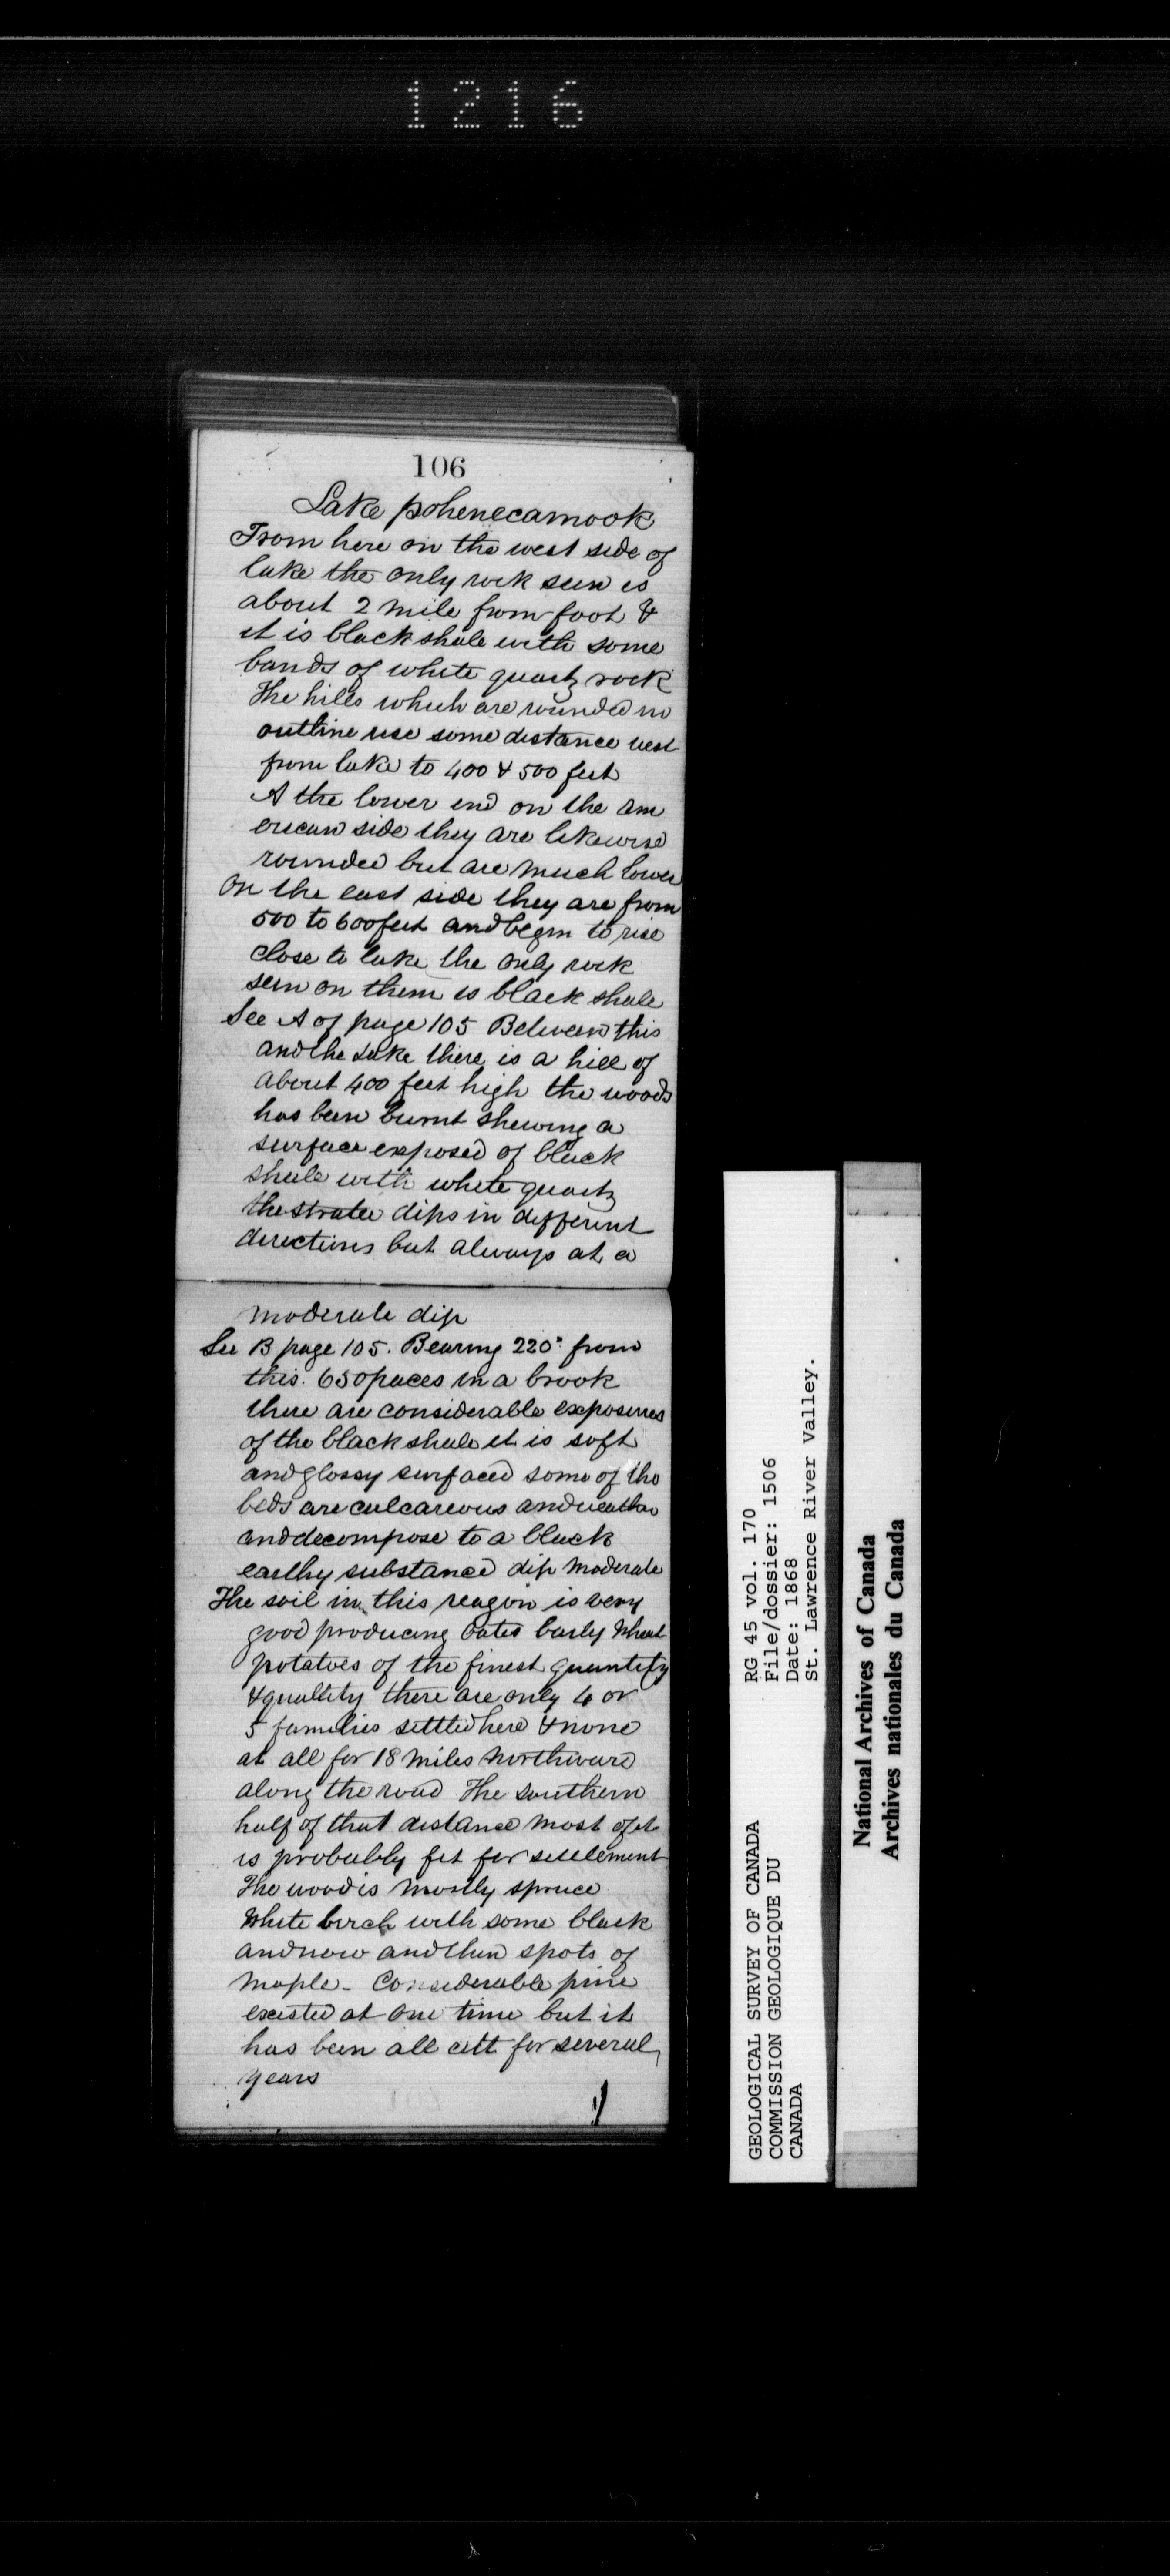 1216
106
Lake pohenecamook
From here on the west side of
lake the only rock seen is
about 2 mile from foot &
it is black shale with some
bands of white quartz rock
The hills which are rounded in
outline rise some distance west
from lake to 400 & 500 feet
A the lower end on the am
erican side they are likewise
rounded but are much lower
On the east side they are from
500 to 600 feet and begin to rise
close to lake the only rock
seen on them is black shale
See A of page 105 Between this
and the Lake there is a hill of
about 400 feet high the woods
has been burnt shewing a
surface exposed of black
shale with white quartz
the strata dips in different
directions but always at a
moderate dip
See B page 105. Bearing 220° from
this. 650 paces in a brook
there are considerable exposures
of the black shale it is soft
and glossy surfaced some of the
beds are calcareous and weather
and decompose to a black
earthy substance dip moderate
The soil in this reagion is very
good producing Oates barly Wheat
potatoes of the finest quantity
& quallity there are only 4 or
5 families settled here & none
at all for 18 miles northward
along the road The southern
half of that distance most of it
is probably fit for settlement
The wood is mostly spruce
White birch with some black
and now and then spots of
maple - Considerable pine
existed at one time but it
has been all cutt for several
years
GEOLOGICAL SURVEY OF CANADA
COMMISSION GEOLOGIQUE DU
CANADA
RG 45 vol. 170
File/dossier: 1506
Date: 1868
St. Lawrence River Valley.
National Archives of Canada
Archives nationales du Canada